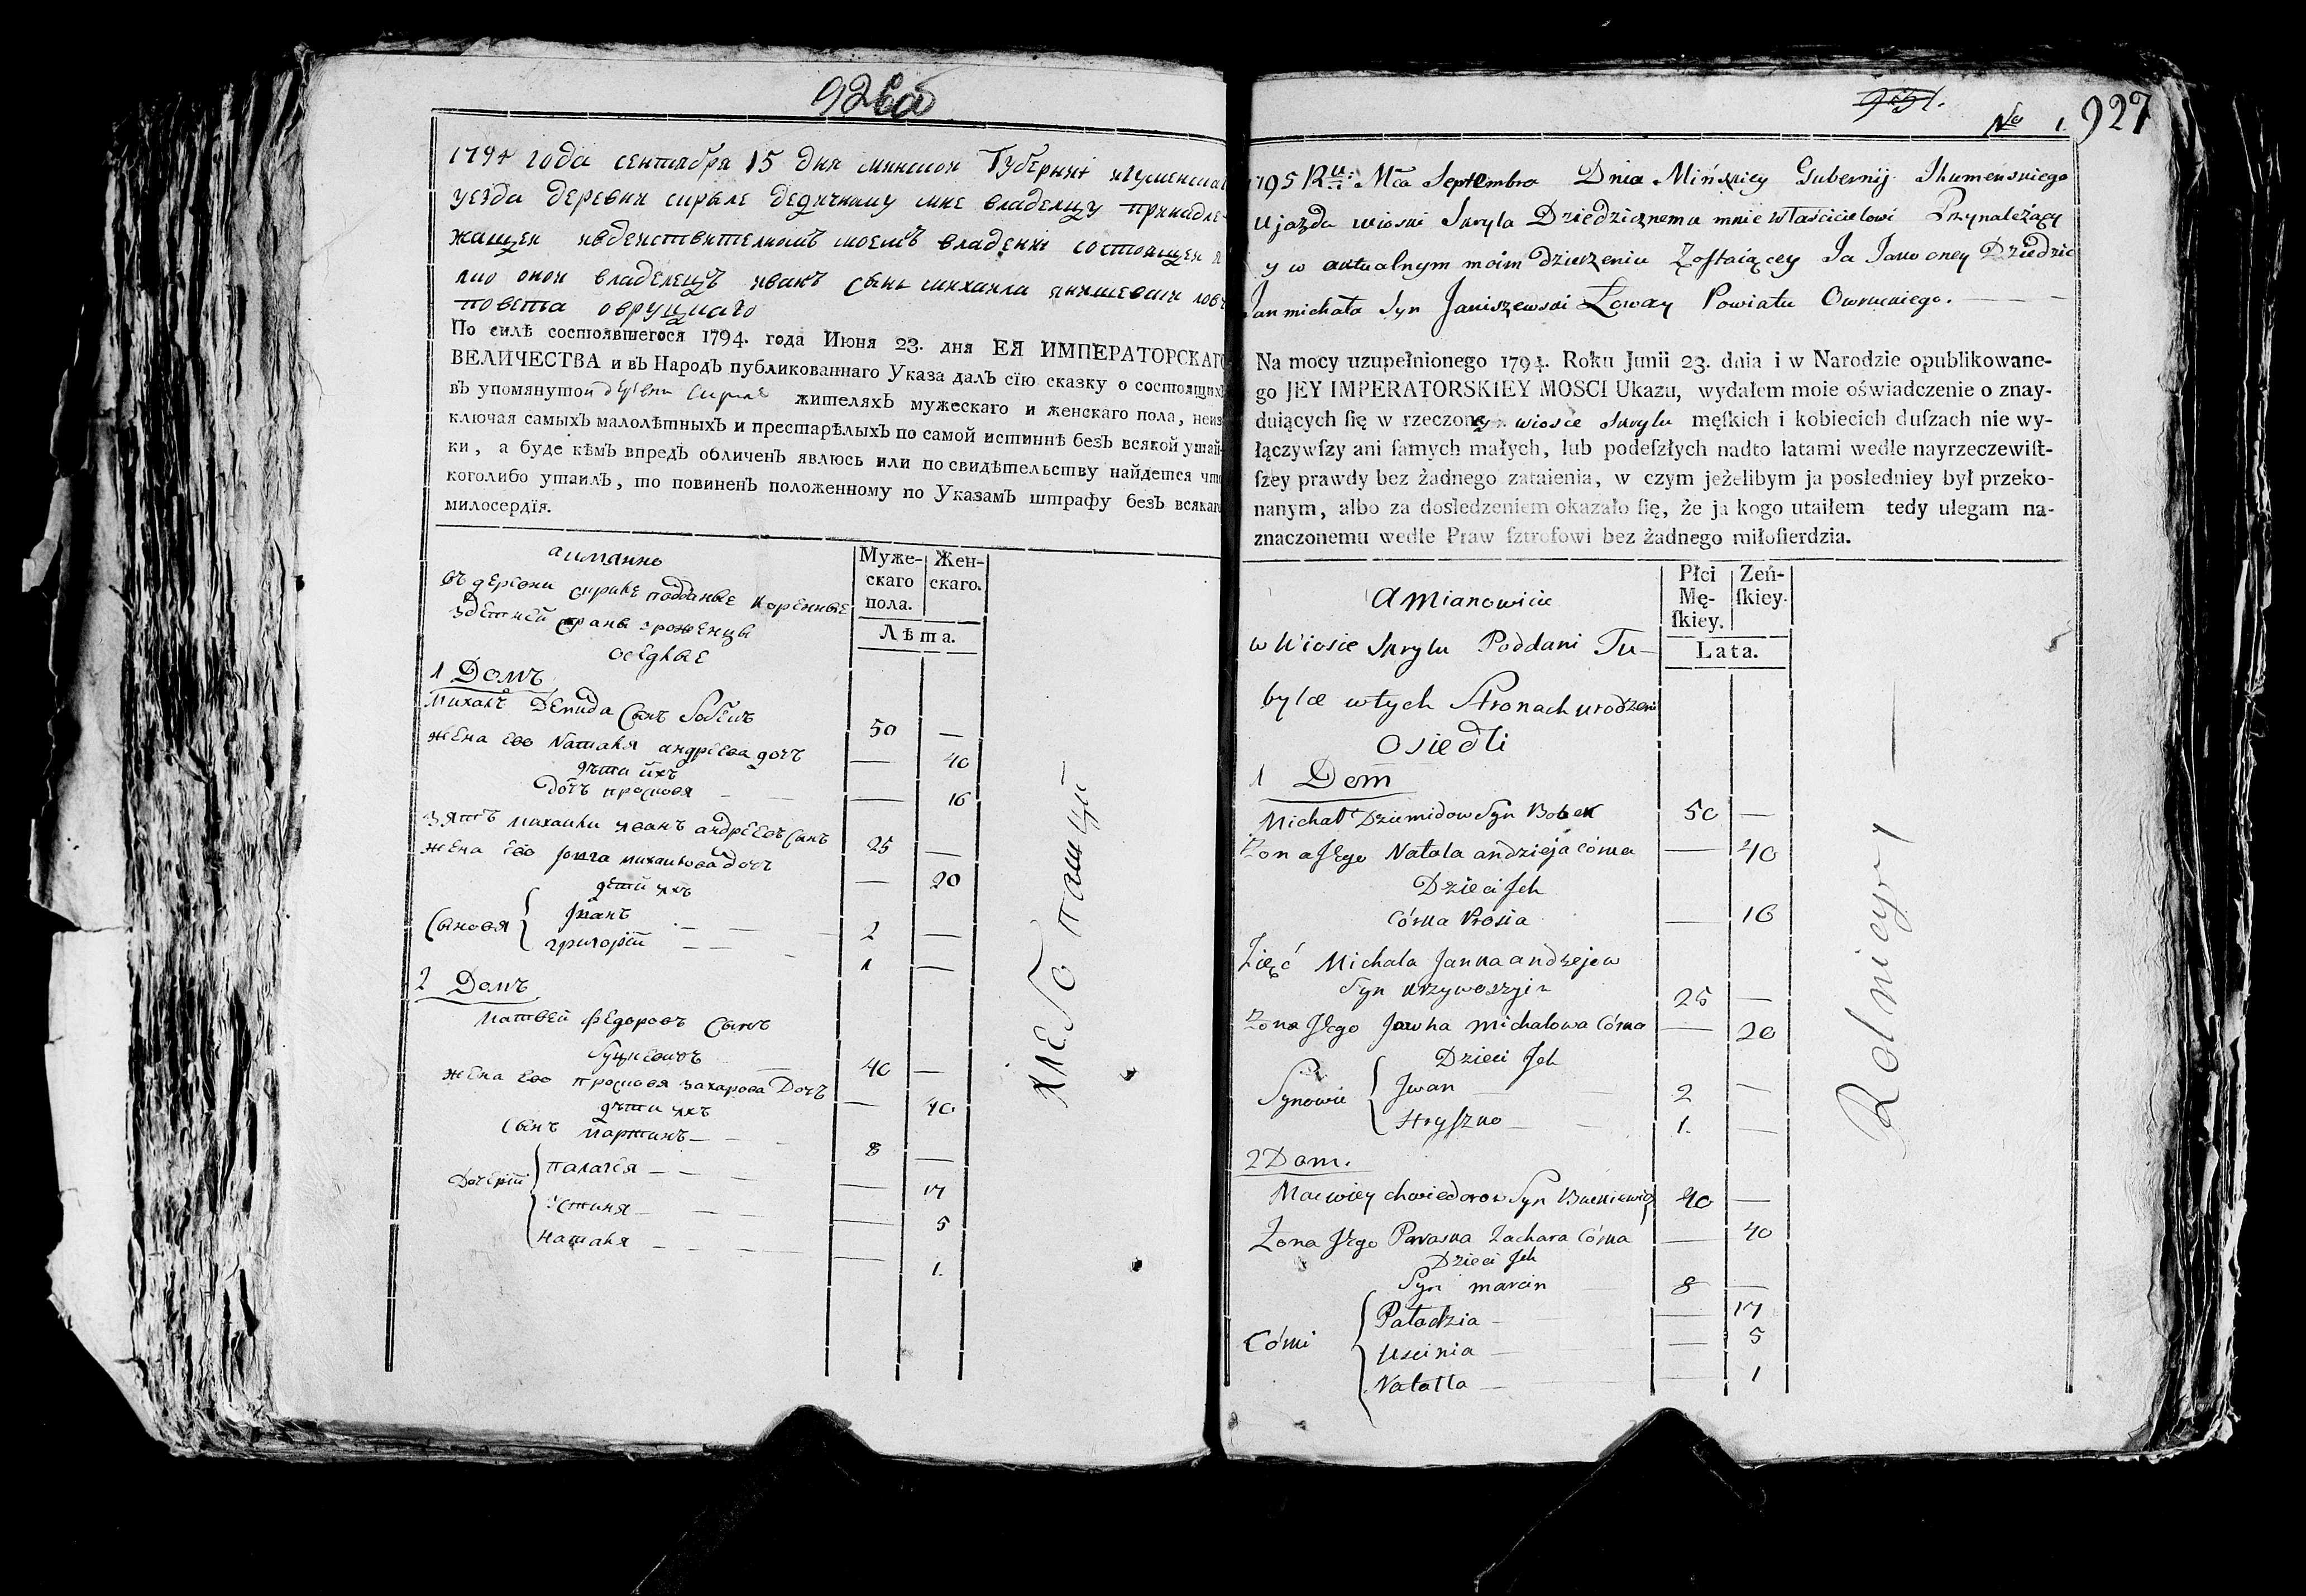 926об
1794 года сентября 15 дня минской Губернии игуменскаг
уезда деревни скрыле дедичному мне владелцу принадле-
жащей ивденствителномъ моемъ владении состоящей я
оной владелецъ иванъ сынъ михаила янишевский ловч
повета овруцкаго
По силѣ состоявшегося 1794. года Июня 23. дня ЕЯ ИМПЕРАТОРСКАГО
ВЕЛИЧЕСТВА и въ Народъ публикованнаго Указа далъ сїю сказку о состоящихъ
въ упомянутой деревни Скриле жителяхъ мужескаго и женскаго пола, неиз
ключая самыхъ малолѣтныхъ и престарѣлыхъ по самой истиннѣ безъ всякой утай-
ки, а буде кѣмъ впредъ обличенъ явлюсь или по свидѣтельству найдется что
коголибо утаилъ, то повиненъ положенному по Указамъ штрафу безъ всякаго
милосердїя.
аимянно
въ деревни скриле подданые коренные
здешней страны урожѣнцы
оседлые
Муже-скаго пола. Жен-скаго.
Лѣта.
1 Домъ
Михалъ Демида сынъ Бобекъ 50 —
жена его Наталя андреева дочъ — 40
дѣти ихъ
дочъ просковя — 16
зять михайли иванъ андреевъ сынъ 25 —
жена его михайлова дочъ — 20
дѣти ихъ
Сыновя { Иванъ — 2 —
григорій — 1 —
2 Домъ
Матвей федоровъ сынъ
Буцкевичъ 40 —
жена его просковя захарова Дочъ — 40
дѣти ихъ
сынъ мартинъ — 8 —
Дочерий { палагея — — 17
Устиня — — 5
наталя — — 1.
хлебопашцы

951.
No 1. 927
1795 Ru: Mca Septembra Dnia Mińskiey Gubernij Ihumeńskiego
Ujazda wioski Skryla Dziedzicznemu mnie właścicielowi Przynależący
y w aktualnym moim dzierzeniu Zostaiącey Ja Jako oney Dziedzic
Jan michała Syn Janiszewski Łowczy Powiatu Owruckiego. — —
Na mocy uzupełnionego 1794. Roku Junii 23. dnia i w Narodzie opublikowane-
go JEY IMPERATORSKIEY MOSCI Ukazu, wydałem moie oświadczenie o znay-
duiących ſię w rzeczoney wiosce Skrylu męſkich i kobiecich duſzach nie wy-
łączywſzy ani ſamych małych, lub podeſzłych nadto latami wedle nayrzeczewiſt-
ſzey prawdy bez żadnego zataienia, w czym jeżelibym ja posledniey był przeko-
nanym, albo za dosledzeniem okazało ſię, że ja kogo utaiłem tedy ulegam na-
znaczonemu wedle Praw ſztrofowi bez żadnego miłoſierdzia.
A Mianowicie
Płci Mę-ſkiey. Zeń-ſkiey.
Lata.
w Wiosce Skrylu Poddani Tu-
bylce wtych Stronach urodzeni
Osiedli
1 Dom
Michał Dziemidow Syn Bobek 50 —
Żona Jego Natala andzieja córka — 40
Dzieci Ich
Córka Prosia — 16
Zięć Michala Janka andzejew
Syn 25 —
Żona Jego Jawha michałowa Córka — 20
Dzieci Ich
Synowie { Jwan — 2 —
Hryszko — 1. —
2 Dom.
Maciwiey chwiedorow Syn Buckiewicz 40 —
Żona Jego Paraska Zachara Córka — 40
Dzieci Ich
Syn marcin 8 —
Córki { Paładzia — — 17
Uscinia — — 5
Natalla — — 1
Rolnicy